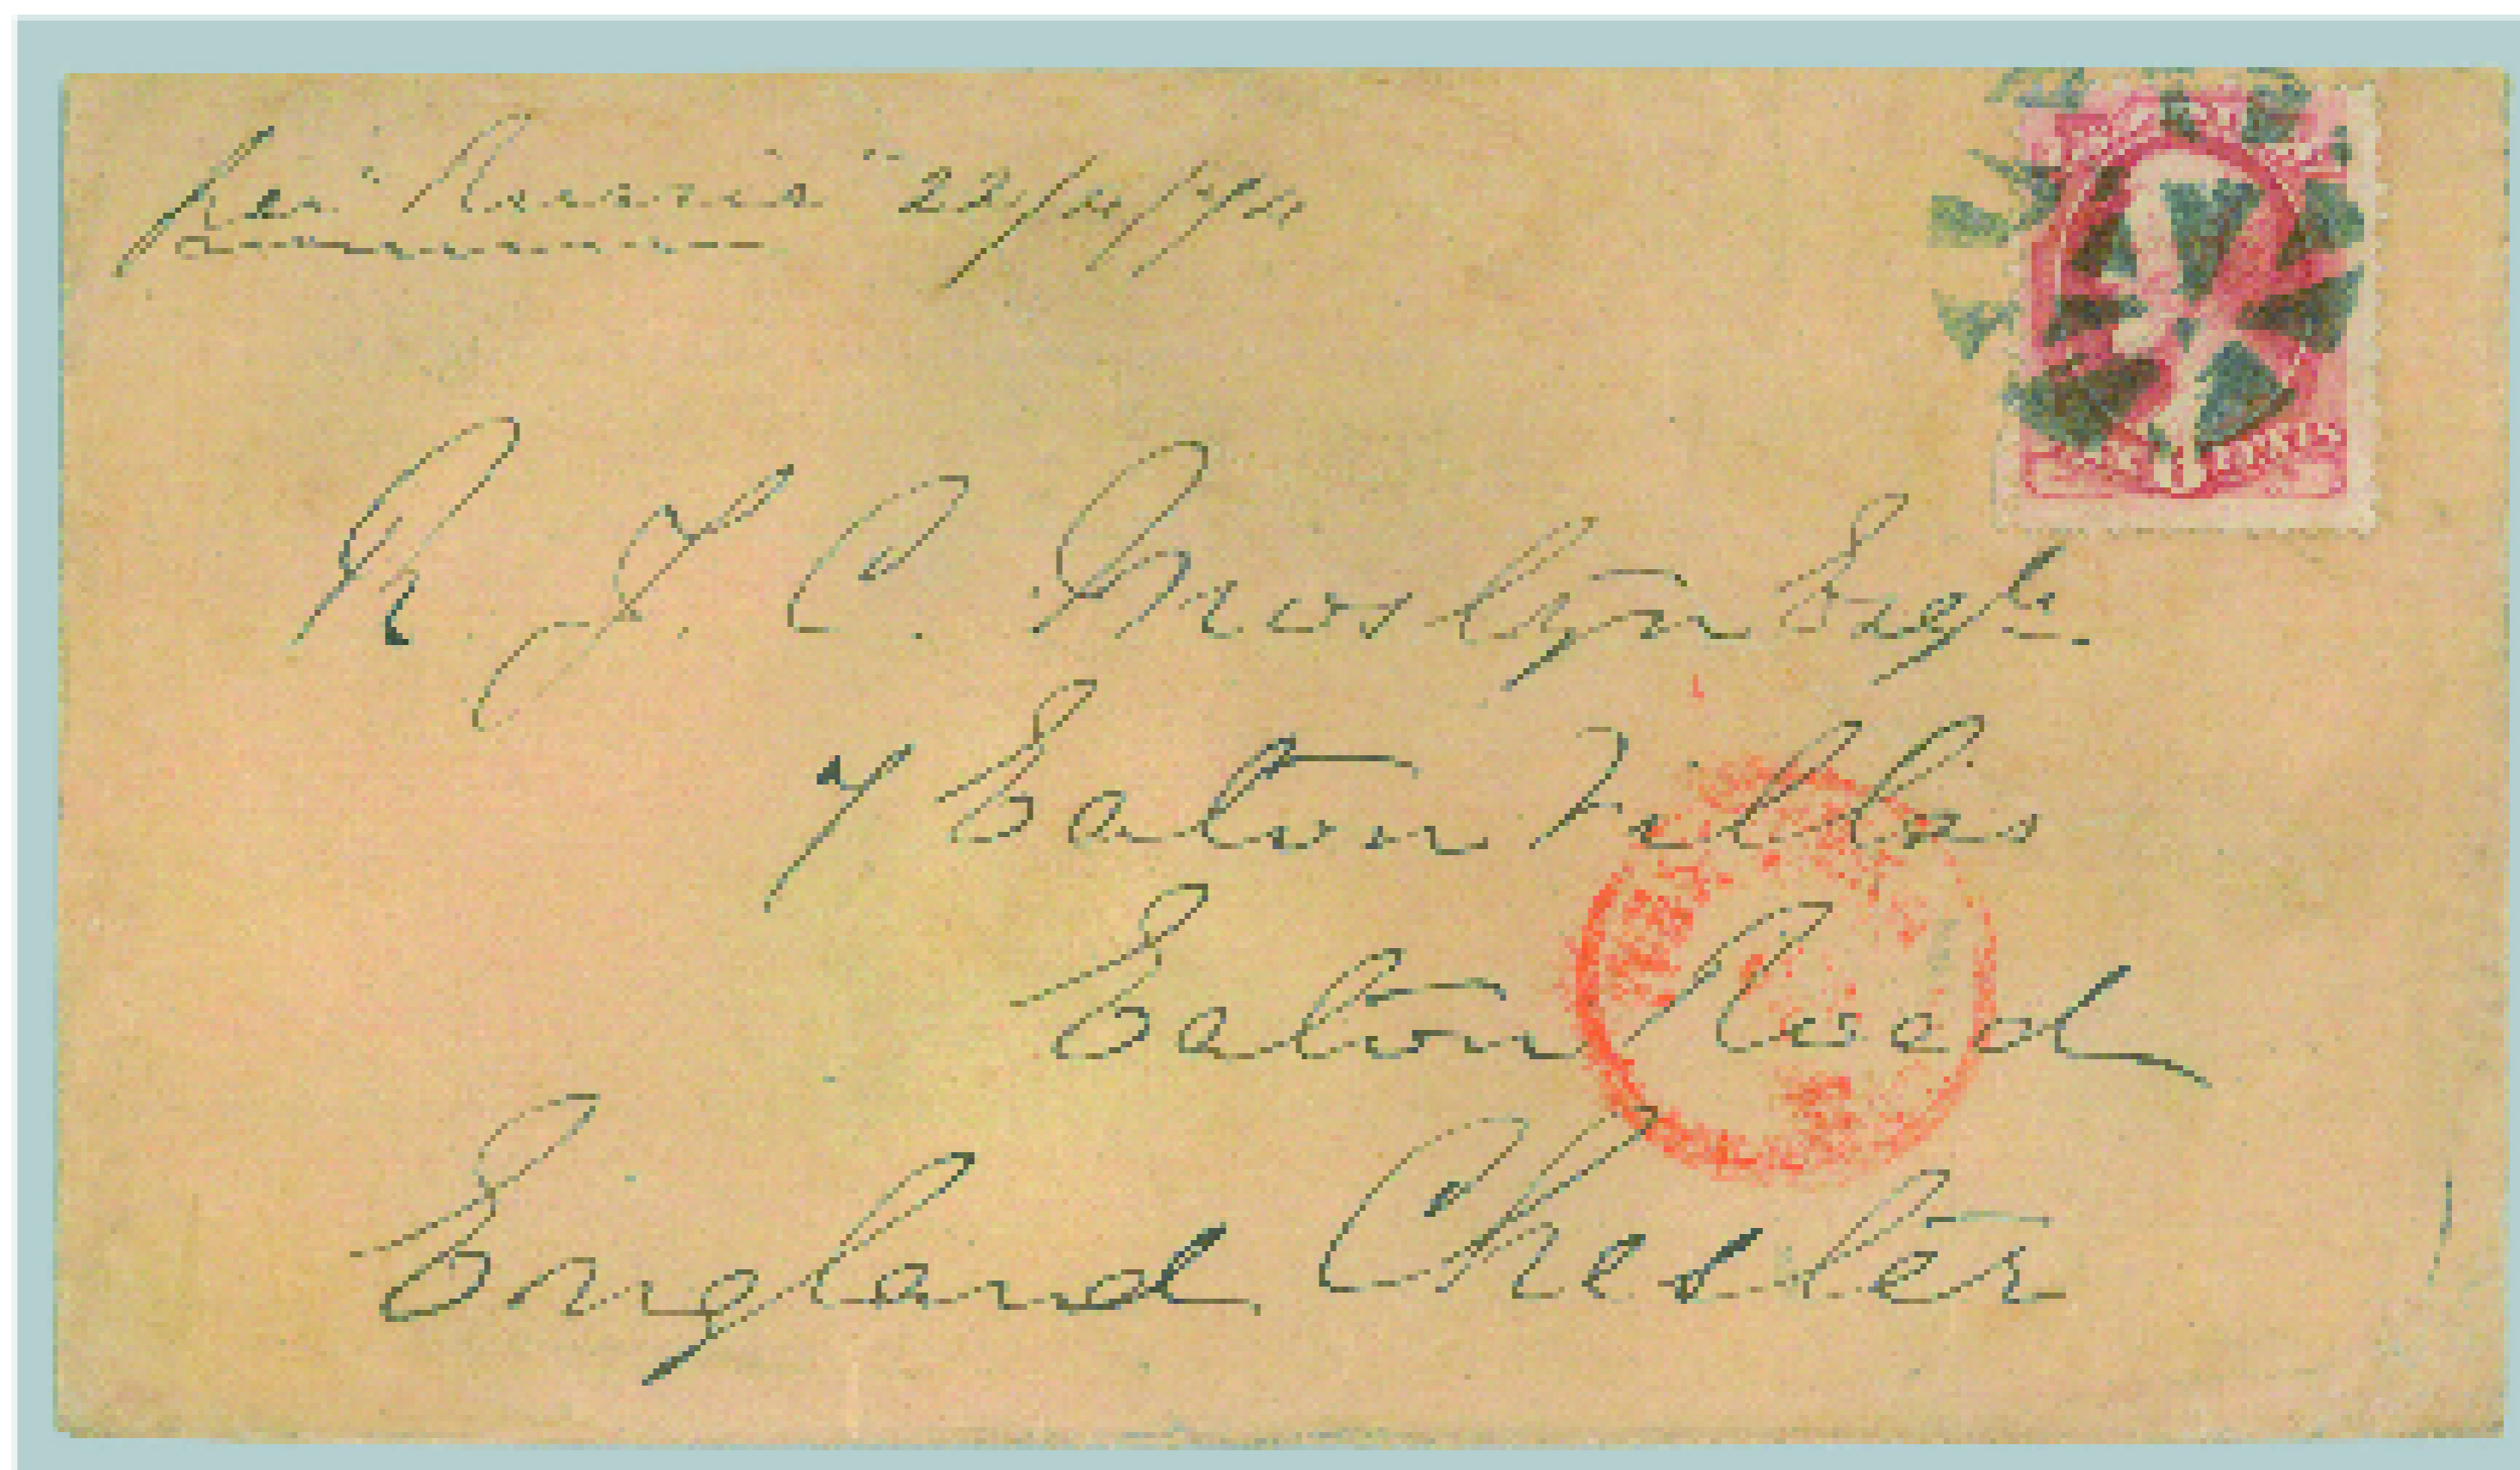 per "Russia" 22/4/74
CENTS
R. J. C. Mostyn Esqr.
7 Eaton Villas
Eaton Road
England Chester